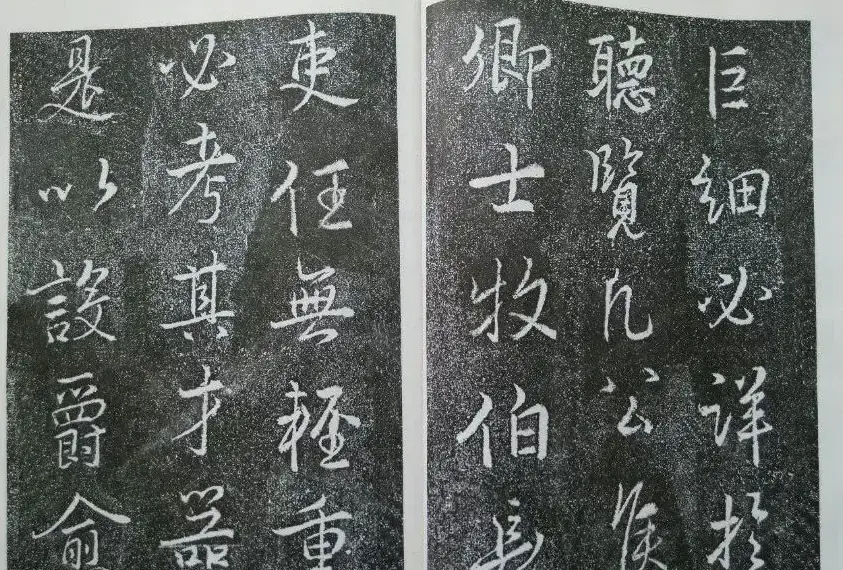 巨細必詳於
聽覽凡公侯
卿士牧伯長
吏任無輕重
必考其才器
是以設爵俞